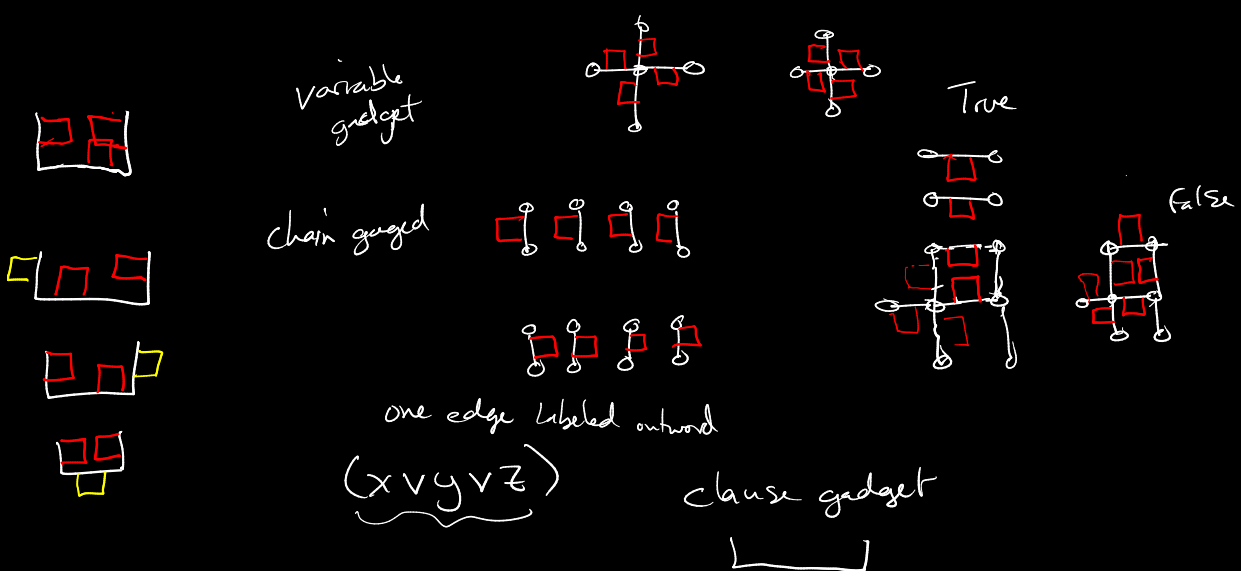 variable
gadget
True
chain gaged
False
one edge labeled outword
(x ∨ y ∨ z)
clause gadget